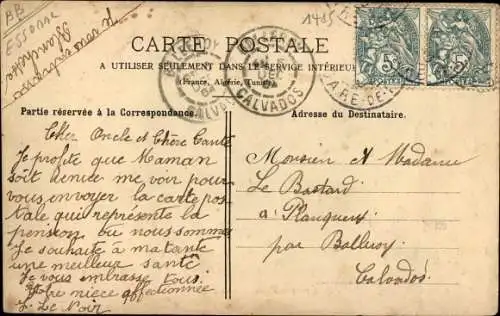 BB
ESSONNE
Blanchette
je vous embrasse
1435
CARTE POSTALE
A UTILISER SEULEMENT DANS LE SERVICE INTÉRIEUR
(France, Algérie, Tunisie)
CALVADOS
GARE-DE-
5
5
Partie réservée à la Correspondance.
Adresse du Destinataire.
Cher Oncle et Chère Tante
Je profite que Maman
soit venue me voir pour
vous envoyer la carte pos
tale qui représente la
pension ou nous sommes
Je souhaite à ma tante
une meilleur santé
Je vous embrasse tous.
Votre nièce affectionnée
L. Le Noir
Monsieur et Madame
Le Bastard
à Planquery
par Balleroy
Calvados